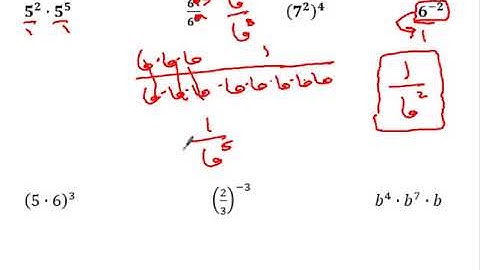 5² · 5⁵ 6 1/6⁵ (7²)⁴ 6⁻²
1 1 6 1
6·6·6 1
6·6·6·6·6·6·6·6 1/6²
1/6⁵
(5 · 6)³ (2/3)⁻³ b⁴ · b⁷ · b